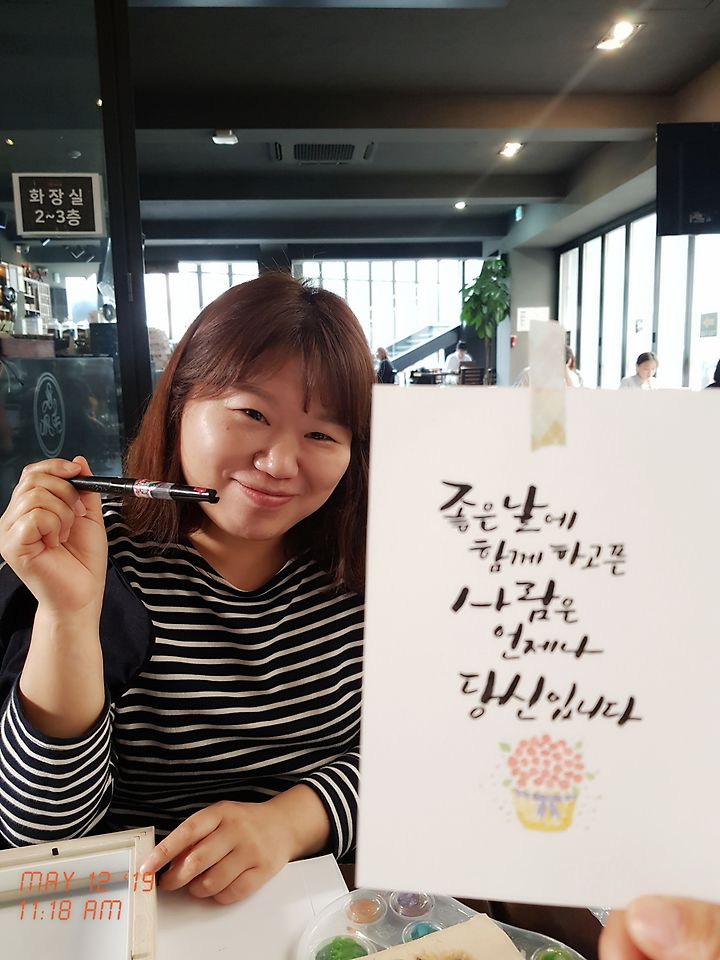 화장실
2~3층
좋은 날에
함께 하고픈
사람은
언제나
당신입니다
MAY 12 '19
11:18 AM